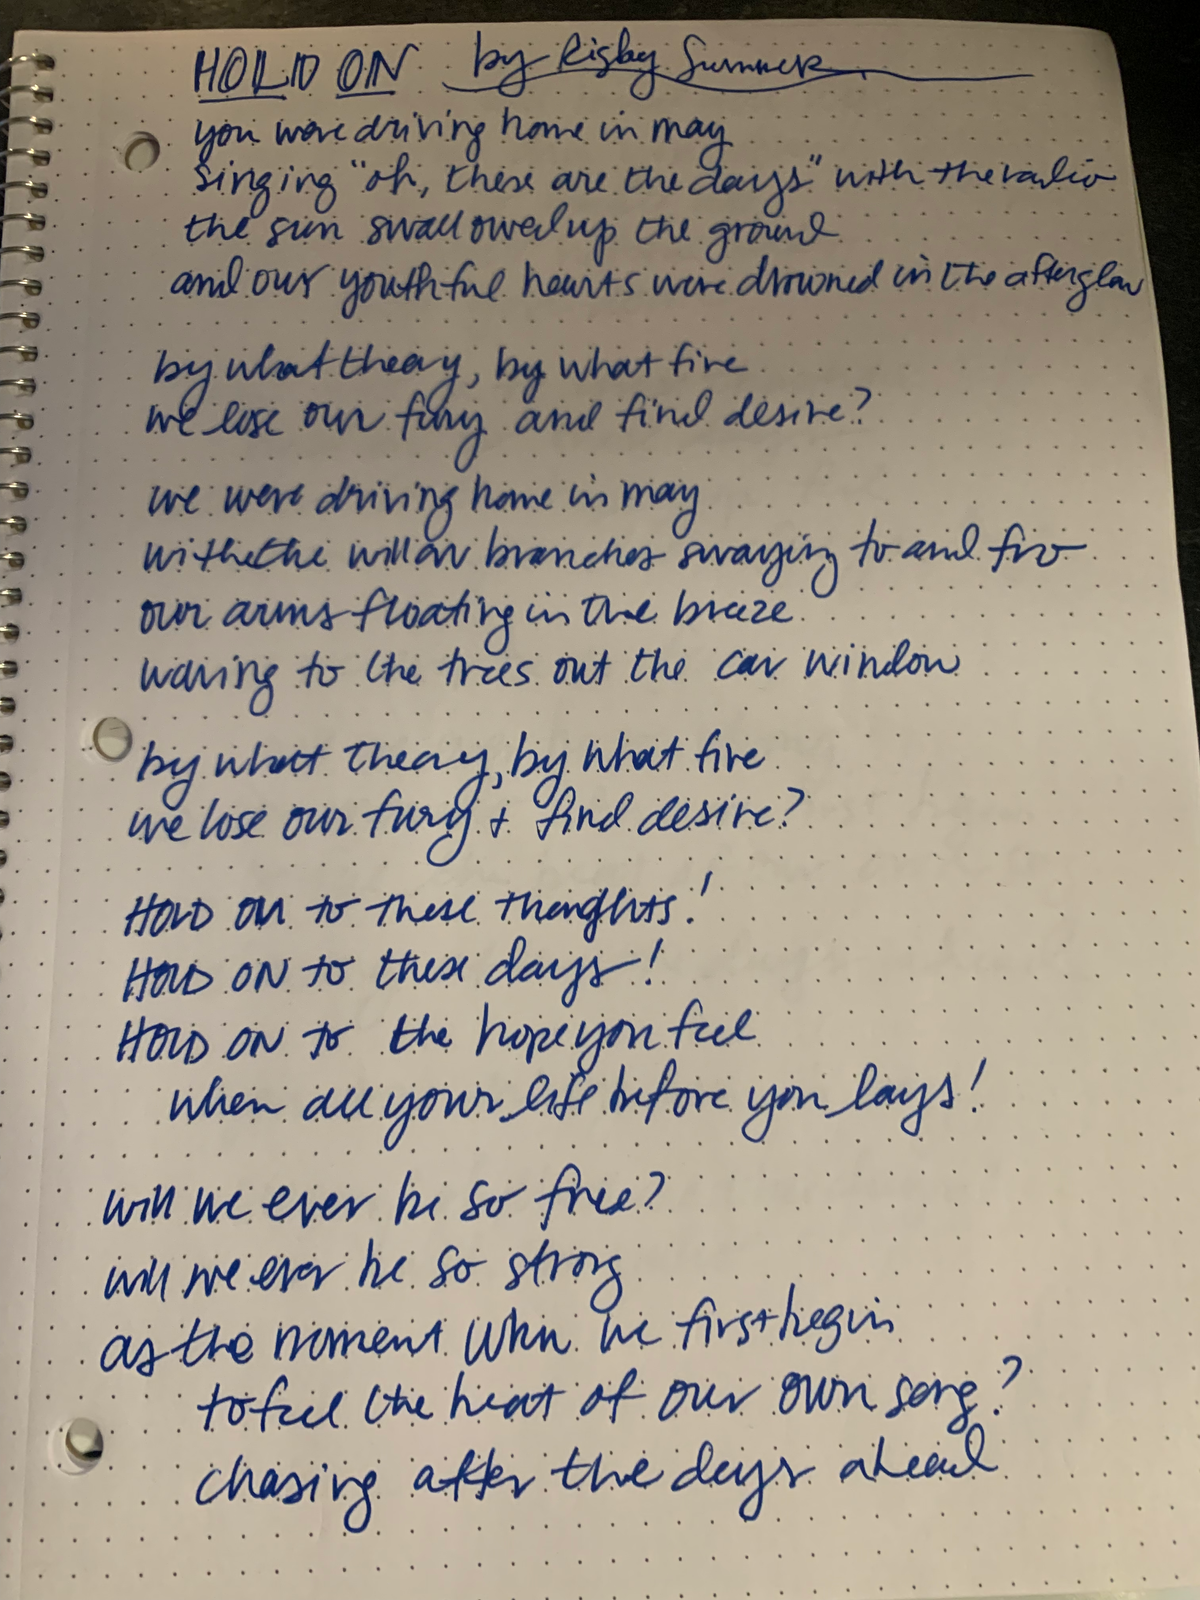 HOLD ON by Rigby Summer
you were driving home in may
singing "oh, these are the days" with the radio
the sun swallowed up the ground
and our youthful hearts were drowned in the afterglow
by what theory, by what fire
we lose our fury and find desire?
we were driving home in may
with the willow branches swaying to and fro
our arms floating in the breeze
waving to the trees out the car window
by what theory, by what fire
we lose our fury + find desire?
HOLD ON to these thoughts!
HOLD ON to these days!
HOLD ON to the hope you feel
when all your life before you lays!
will we ever be so free?
will we ever be so strong
as the moment when we first begin
to feel the heat of our own song?
chasing after the days ahead